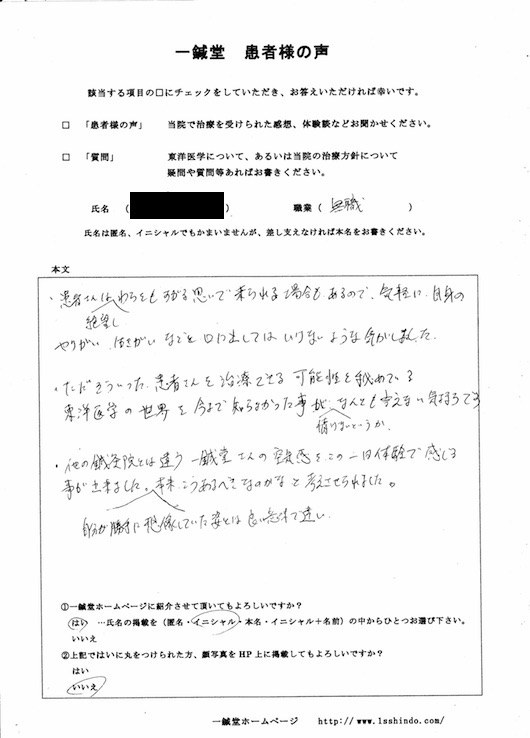 一鍼堂 患者様の声
該当する項目の□にチェックをしていただき、お答えいただければ幸いです。
□ 「患者様の声」 当院で治療を受けられた感想、体験談などお聞かせください。
□ 「質問」 東洋医学について、あるいは当院の治療方針について
疑問や質問等あればお書きください。
氏名 ( ) 職業 ( 無職 )
氏名は匿名、イニシャルでもかまいませんが、差し支えなければ本名をお書きください。
本文
・患者さんはわらをもすがる思いで来られる場合もあるので、気軽に、自身の
絶望し
やりがい、はきがいなどと口に出してはいけないような気がしました。
・ただそういった患者さんを治療できる可能性を秘めている
東洋医学の世界を今まで知らなかった事が、なんとも言えない気持ちです
悔しいというか
・他の鍼灸院とは違う一鍼堂さんの空気感をこの一日体験で感じる
事が出来ました。本来こうあるべきなのかなと考えさせられました。
自分が勝手に想像していた姿とは良い意味で違い
①一鍼堂ホームページに紹介させて頂いてもよろしいですか?
はい …氏名の掲載を (匿名・イニシャル・本名・イニシャル+名前) の中からひとつお選び下さい。
いいえ
②上記ではいに丸をつけられた方、顔写真をHP上に掲載してもよろしいですか?
はい
いいえ
一鍼堂ホームページ http://www.1sshindo.com/